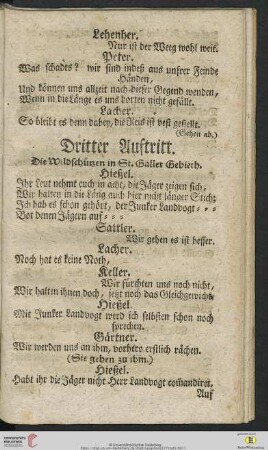 Lehenher.
Nur ist der Weeg wohl weit.
Peter.
Was schades? wir sind indeß aus unsrer Feinde
Händen,
Und können uns allzeit nach dieser Gegend wenden,
Wenn in die Länge es uns dorten nicht gefällt.
Lacher.
So bleibt es denn dabey, die Reis ist vest gestellt.
(Gehen ab.)
Dritter Auftritt.
Die Wildschützen in St. Galler Gebieth.
Hießel.
Ihr Leut nehmt euch in acht, die Jäger zeigen sich,
Wir halten in die Läng auch hier nicht länger Stich:
Ich hab es schon gehört, der Junker Landvogt - - -
Bot denen Jägern auf - - -
Sattler.
Wir gehen es ist besser.
Lacher.
Noch hat es keine Noth,
Keller.
Wir fürchten uns noch nicht,
Wir halten ihnen doch, jetzt noch das Gleichgewicht.
Hießel.
Mit Junker Landvogt werd ich selbsten schon noch
sprechen.
Gärtner.
Wir werden uns an ihm, vorhero erstlich rächen.
(Sie gehen zu ihm.)
Hießel.
Habt ihr die Jäger nicht Herr Landvogt comandiret,
Auf
UNIVERSITÄTS-
BIBLIOTHEK
HEIDELBERG
© Universitätsbibliothek Heidelberg